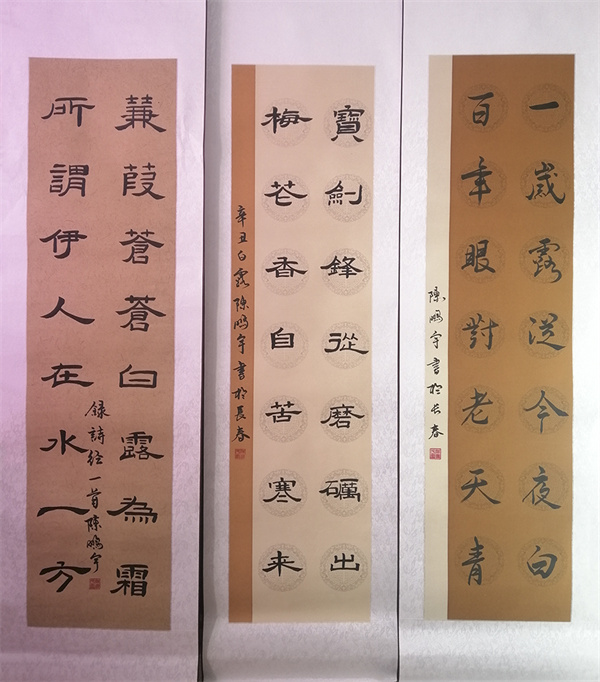 一歲露從今夜白
百年眼對老天青
陳鵬宇書於长春
寶劍鋒從磨礪出
梅花香自苦寒来
辛丑白露陳鵬宇書於長春
蒹葭蒼蒼白露為霜
所謂伊人在水一方
録詩經一首陳鵬宇